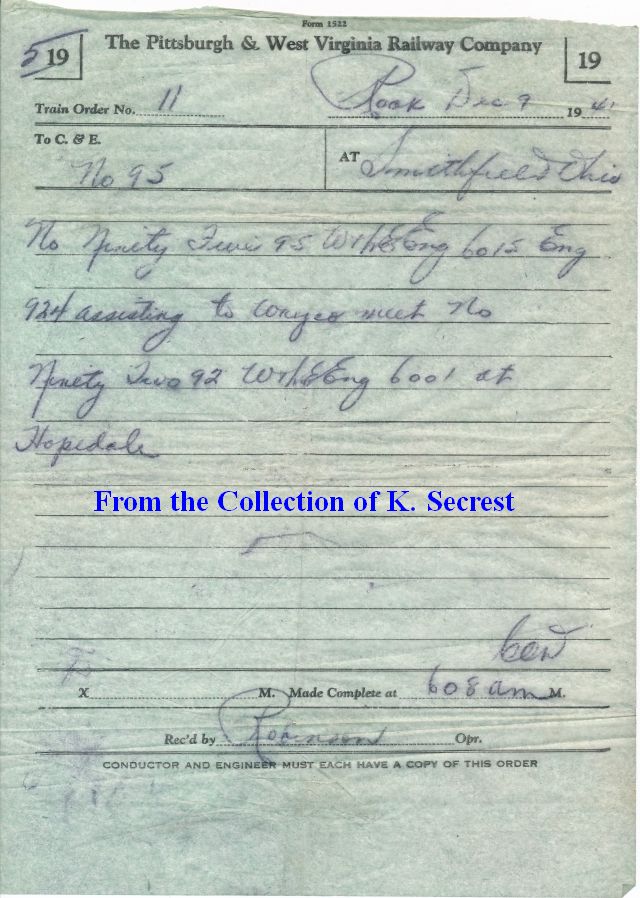 Form 1522
5 19 The Pittsburgh & West Virginia Railway Company 19
Train Order No. 11 Rook Dec 9 1941
To C. & E. No 95 AT Smithfield Ohio
No Ninety Five 95 W&LE Eng 6015 Eng
924 assisting to meet No
Ninety Two 92 W&LE Eng 6001 at
Hopedale
From the Collection of K. Secrest
X M. Made Complete at 608 am M.
Rec'd by Robinson Opr.
CONDUCTOR AND ENGINEER MUST EACH HAVE A COPY OF THIS ORDER